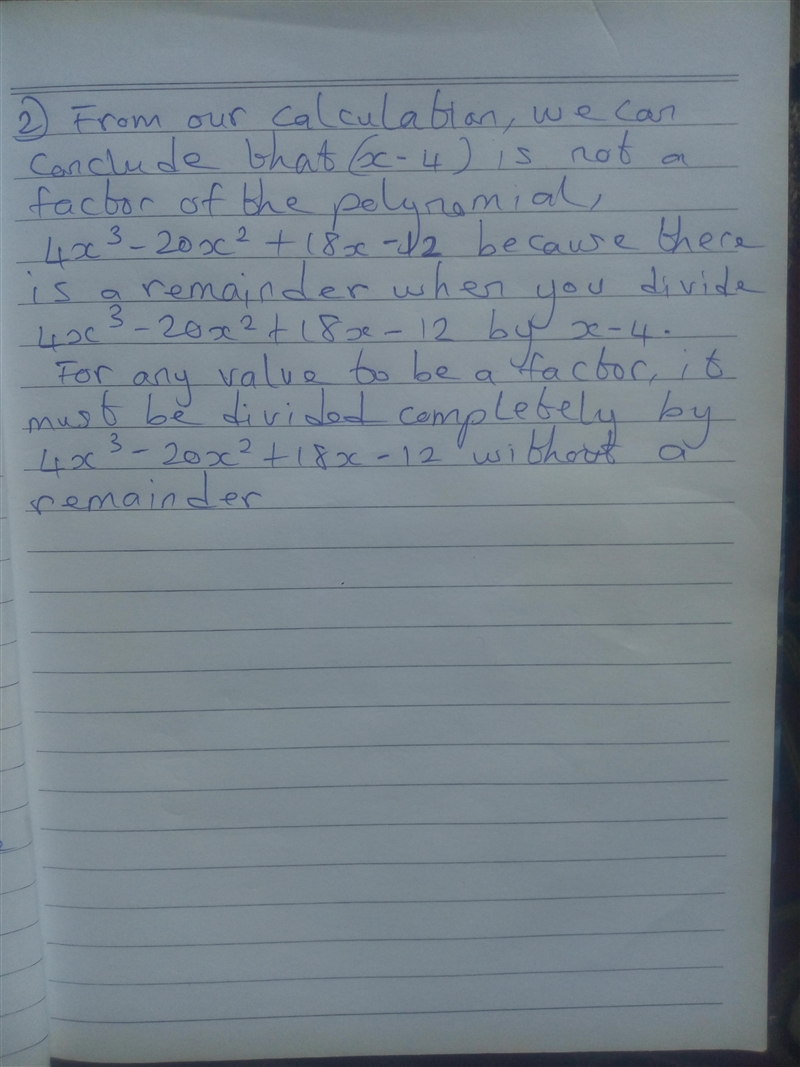 2) From our calculation, we can
conclude that (x-4) is not a
factor of the polynomial,
4x³-20x²+18x-12 because there
is a remainder when you divide
4x³-20x²+18x-12 by x-4.
For any value to be a factor, it
must be divided completely by
4x³-20x²+18x-12 without a
remainder